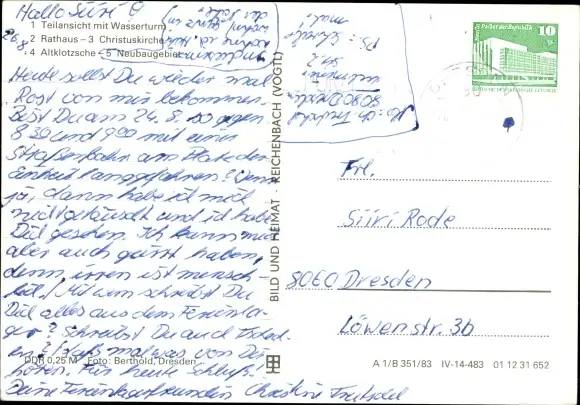 Hallo Siiri!
1 Teilansicht mit Wasserturm
2 Rathaus – 3 Christuskirche
4 Altklotzsche – 5 Neubaugebiet
26.8.
Heute sollst Du wieder mal
Post von mir bekommen.
Bist Du am 24.8. gegen
8.30 und 9.00 mit einer
Straßenbahn am Platz der
Einheit langgefahren? Wenn
ja, dann habe ich mich
nicht getäuscht und ich habe
Dich gesehen. Ich kann mich
aber auch geirrt haben,
denn irren ist mensch-
lich! Mit wem schreibst Du
Dich alles aus dem Ferienla-
ger? Schreibst Du auch
mal was von Dir
hören. Für heute Schluß!
Deine Ferienlagerfreundin Christine
DDR 0,25 M Foto: Berthold, Dresden
BILD UND HEIMAT · REICHENBACH (VOGTL)
Palast der Republik
10
DEUTSCHE DEMOKRATISCHE REPUBLIK
8080 Dresden
Frl.
Siiri Rode
8060 Dresden
Löwenstr. 3b
A 1/B 351/83 IV-14-483 01 12 31 652